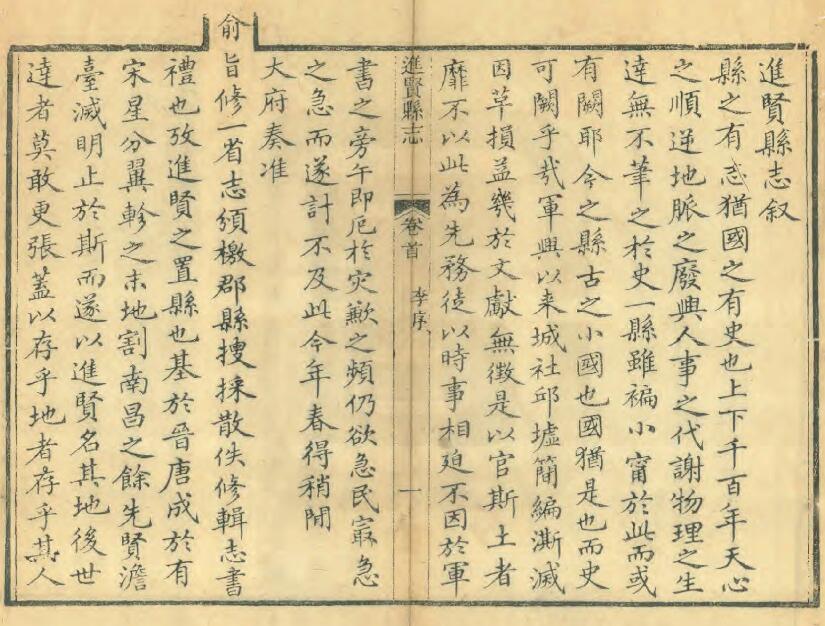 進賢縣志叙
縣之有志猶國之有史也上下千百年天心
之順逆地脈之廢興人事之代謝物理之生
達無不筆之於史一縣雖褊小甯於此而或
有闕耶今之縣古之小國也國猶是也而史
可闕乎㦲軍興以来城社邱墟簡編澌滅
因革損益幾於文獻無徵是以官斯土者
靡不以此為先務徒以時事相廹不因於軍
進賢縣志
卷首
李序
一
書之旁午即厄於灾歉之頻仍欲急民㝡急
之急而遂計不及此今年春得稍閒
大府奏准
俞旨修一省志頒檄郡縣搜採散佚修輯志書
禮也攷進賢之置縣也基於晉唐成於有
宋星分翼軫之末地割南昌之餘先賢澹
臺滅明止於斯而遂以進賢名其地後世
達者莫敢更張蓋以存乎地者存乎其人